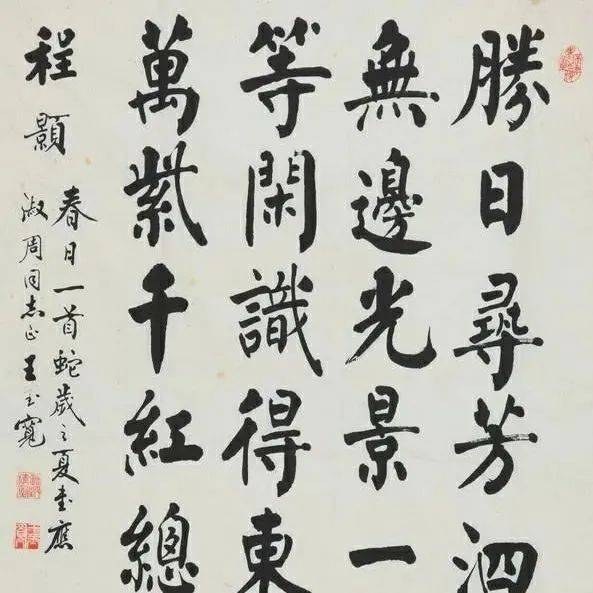 勝日尋芳泗
無邊光景一
等閑識得東
萬紫千紅總
程顥
春日一首蛇歲之夏書應
淑周同志正王玉寬